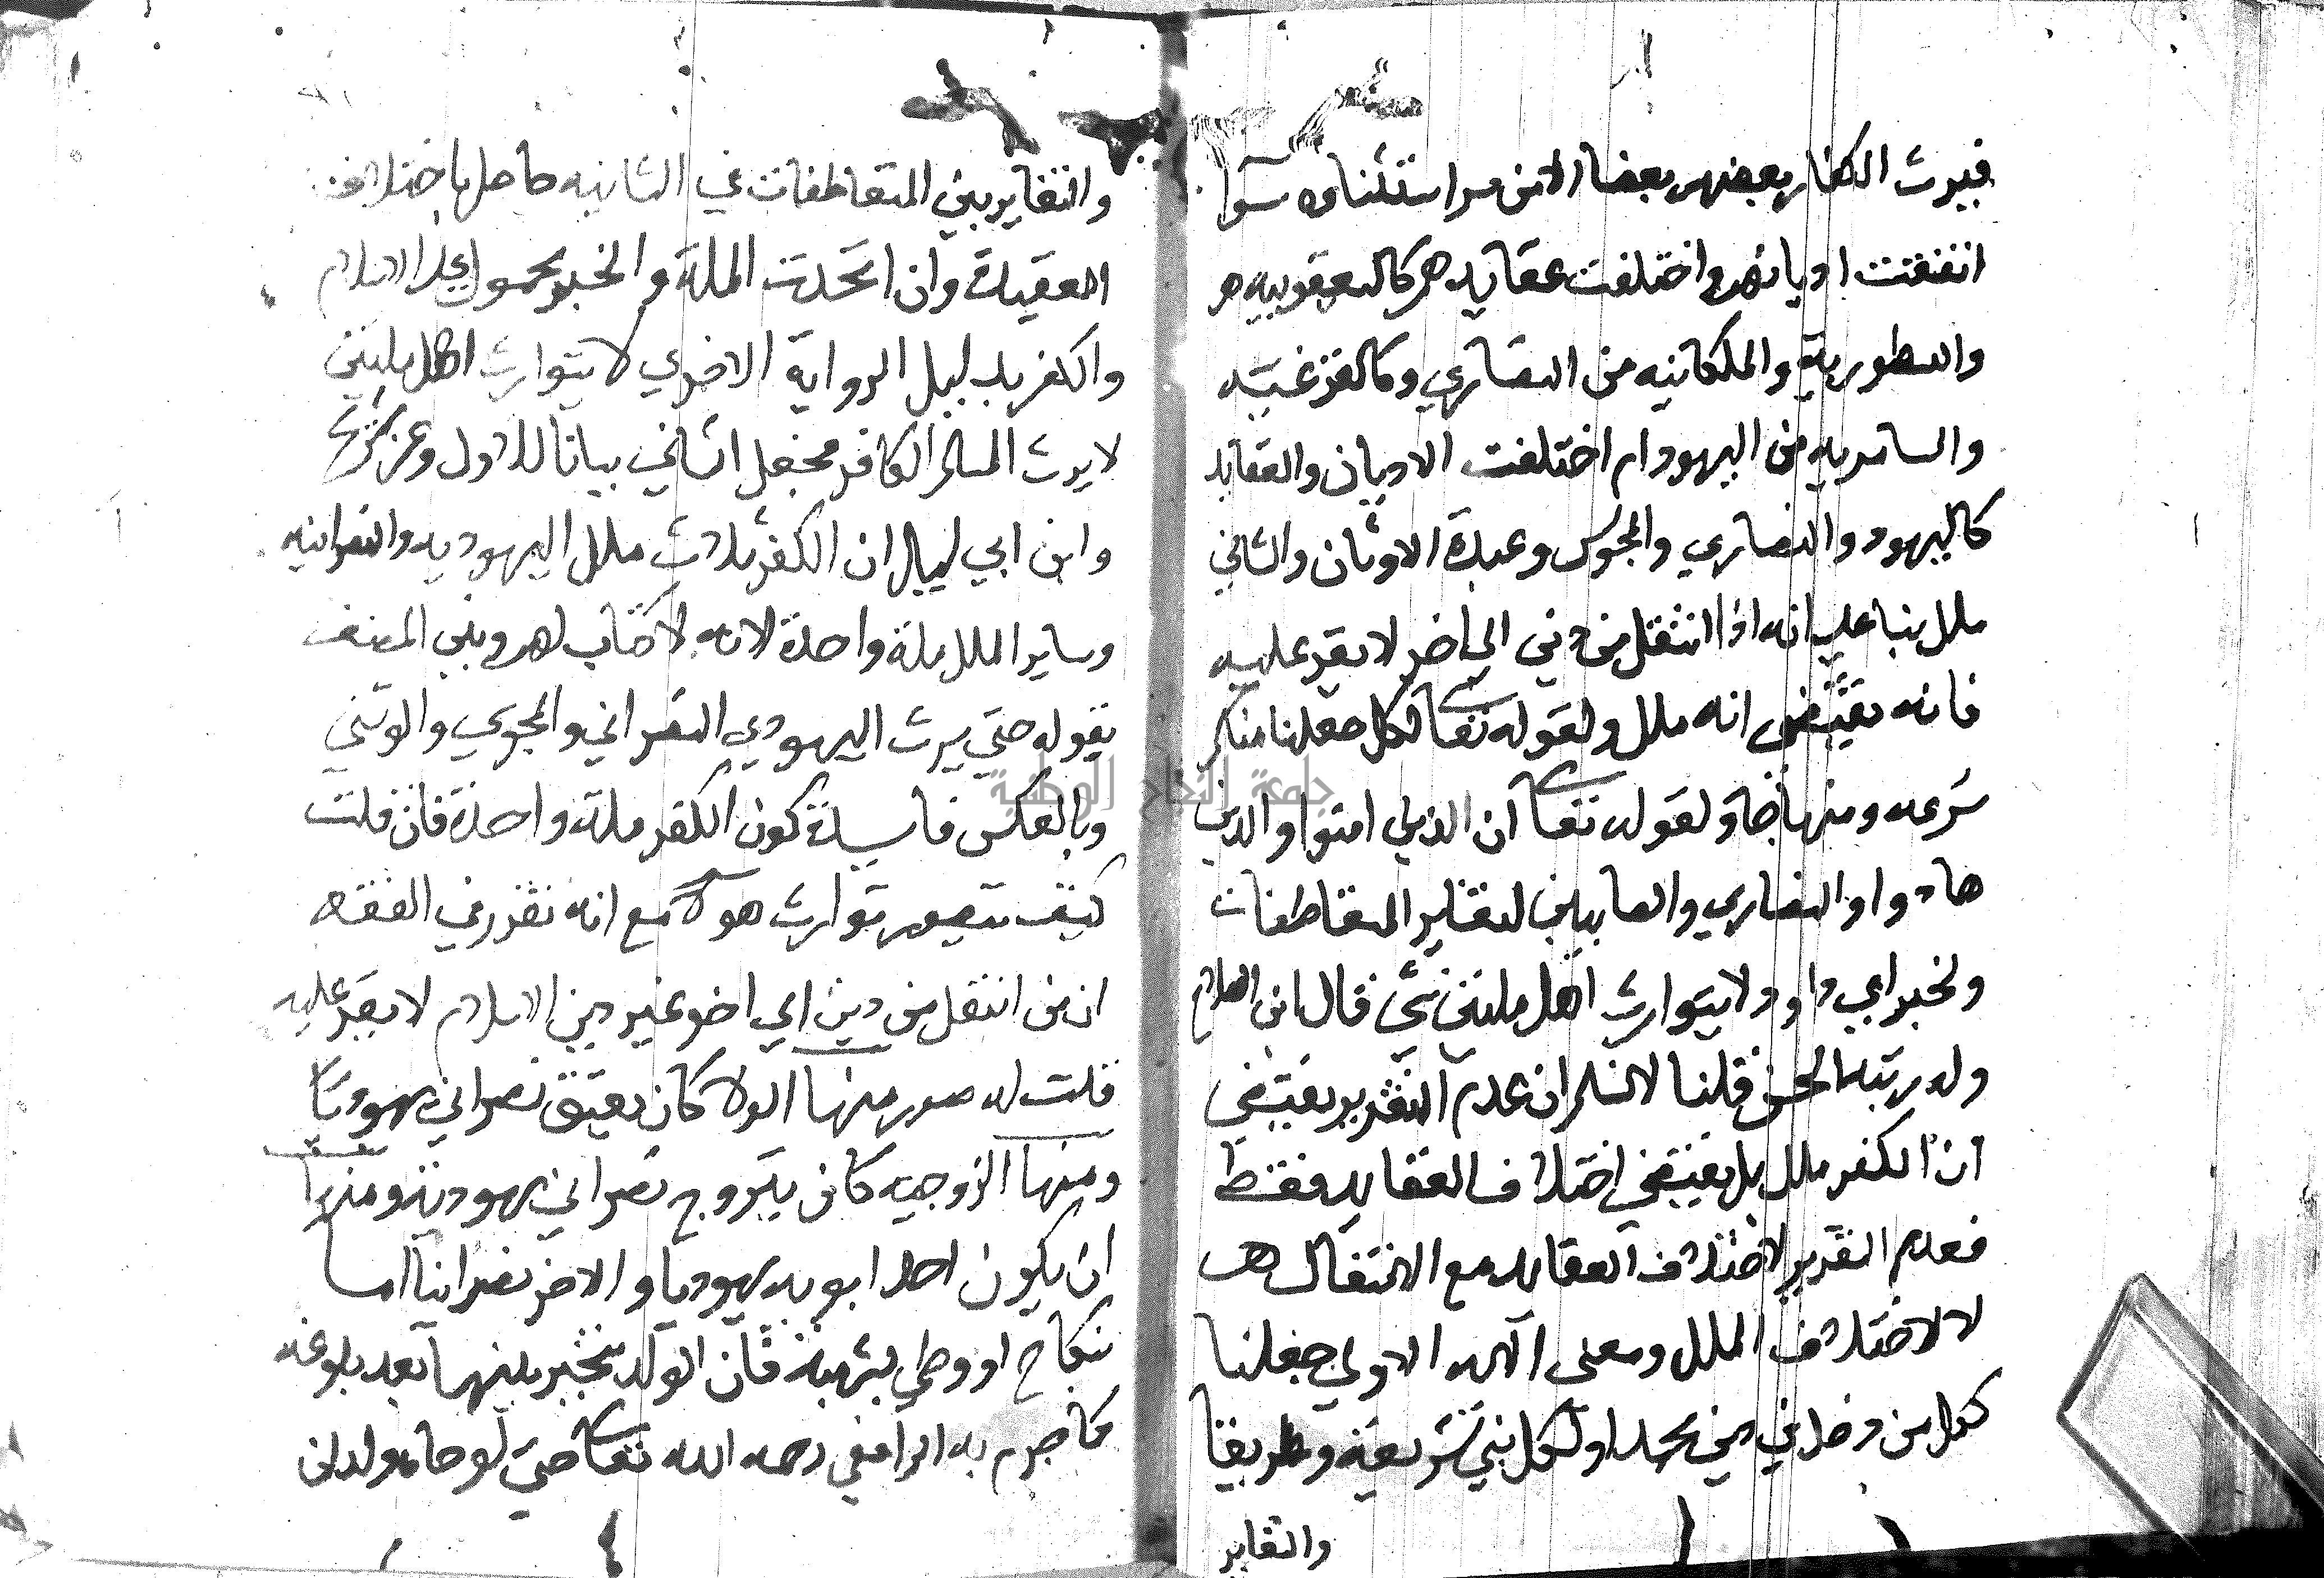 فيرث الكفار بعضهم بعضا الا من مر استثناوه سوآ
اتفقت اديانهم واختلفت عقايدهم كاليعقوبيه
والنسطوريه والملكانيه من النصاري وكالقرعيه
والسامريه من اليهود ام اختلفت الاديان والعقايد
كاليهود والنصاري والمجوس وعبدة الاوثان والثاني
ملل بنا علي انه اذا انتقل من دين الي اخر لا يقر عليه
فانه يقتضي انه ملل ولقوله تعالي لكل جعلنا منكم
شرعه ومنهاجا ولقوله تعالي ان الذين امنوا والذين
هادوا والنصاري والصابيين لتغاير المتعاطفات
ولخبر ابي داود ولا يتوارث اهل ملتين شي قال ابن الملاح
وله رتبه الحسن قلنا لا نسلم ان عدم التقرير يقتضي
ان الكفر ملل بل يقتضي اختلاف العقايد فقط
فعدم التقرير لاختلاف العقايد مع الانتقال
لا لاختلاف الملل ومعني الآيه الاولي جعلنا
كل من دخل في دين محمد او لكل نبي شريعة وطريقا
والتغاير
والتغاير بين المتعاطفات في الثانيه حاصل باختلاف
العقيدة وان اتحدت الملة والخبر محمول علي الاسلام
والكفر بدليل الرواية الاخري لا يتوارث اهل ملتين
لا يرث المسلم الكافر فجعل الثاني بيانا للاول وعن شريح
وابن ابي ليلي ان الكفر ثلاث ملل اليهوديه والنصرانيه
وساير الملل ملة واحدة لانه لا كتاب لهم وبين المصنف
بقوله حتي يرث اليهودي النصراني والمجوسي والوثني
وبالعكس فايدة كون الكفر ملة واحدة فان قلت
كيف يتصور توارث هولآ مع انه تقرر في الفقه
ان من انتقل من دين الي اخر غير دين الاسلام لا يقر عليه
قلت له صور منها الولا كان يعتق نصراني يهوديا
ومنها الزوجيه كان يتزوج نصراني يهودية ومنها
ان يكون احد ابويه يهوديا والاخر نصرانيا اما
بنكاح او وطي بشبهة فان الولد يتخير بينهما بعد بلوغه
كما جزم به الرافعي رحمه الله تعالي حتي لو جاه ولدان